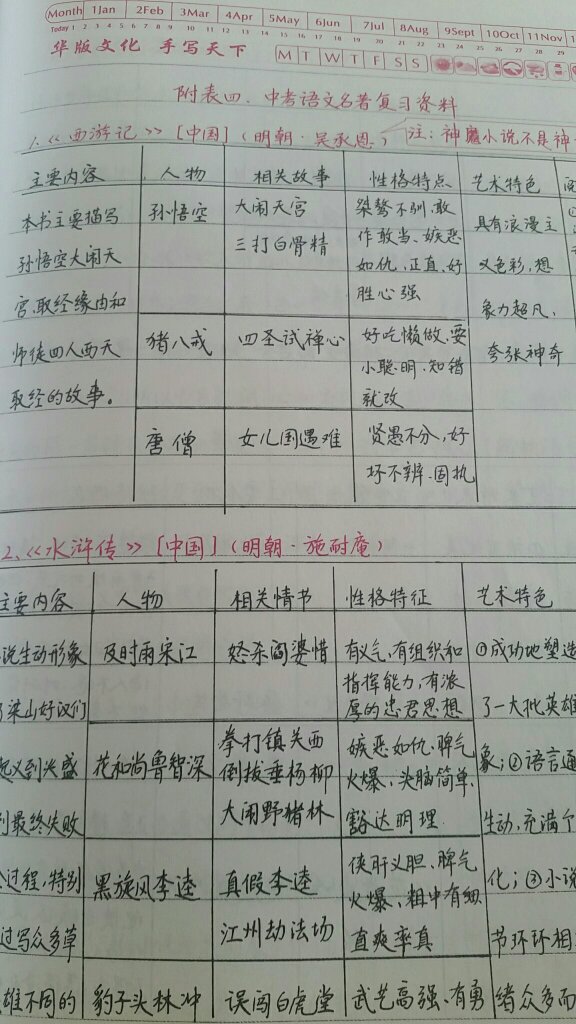 Month 1Jan 2Feb 3Mar 4Apr 5May 6Jun 7Jul 8Aug 9Sept 10Oct 11Nov
华版文化 手写天下
M T W T F S S
附表四、中考语文名著复习资料
1、《西游记》[中国](明朝·吴承恩) 注:神魔小说不是神
主要内容 人物 相关故事 性格特点 艺术特色
本书主要描写
孙悟空大闹天
宫、取经缘由和
师徒四人西天
取经的故事。
孙悟空
大闹天宫
三打白骨精
桀骜不驯、敢
作敢当、嫉恶
如仇、正直、好
胜心强
猪八戒
四圣试禅心
好吃懒做、耍
小聪明、知错
就改
唐僧
女儿国遇难
贤愚不分,好
坏不辨、固执
具有浪漫主
义色彩,想
象力超凡、
夸张神奇
2、《水浒传》[中国](明朝·施耐庵)
主要内容 人物 相关情书 性格特征 艺术特色
说生动形象
了梁山好汉们
起义到兴盛
到最终失败
过程,特别
过写众多草
雄不同的
及时雨宋江
怒杀阎婆惜
有义气,有组织和
指挥能力,有浓
厚的忠君思想
花和尚鲁智深
拳打镇关西
倒拔垂杨柳
大闹野猪林
嫉恶如仇、脾气
火爆、头脑简单、
豁达明理
黑旋风李逵
真假李逵
江州劫法场
侠肝义胆、脾气
火爆、粗中有细
直爽率真
豹子头林冲
误闯白虎堂
武艺高强、有勇
①成功地塑造
了一大批英雄
象;②语言通
生动,充满个
化;③小说
节环环相
绪众多而